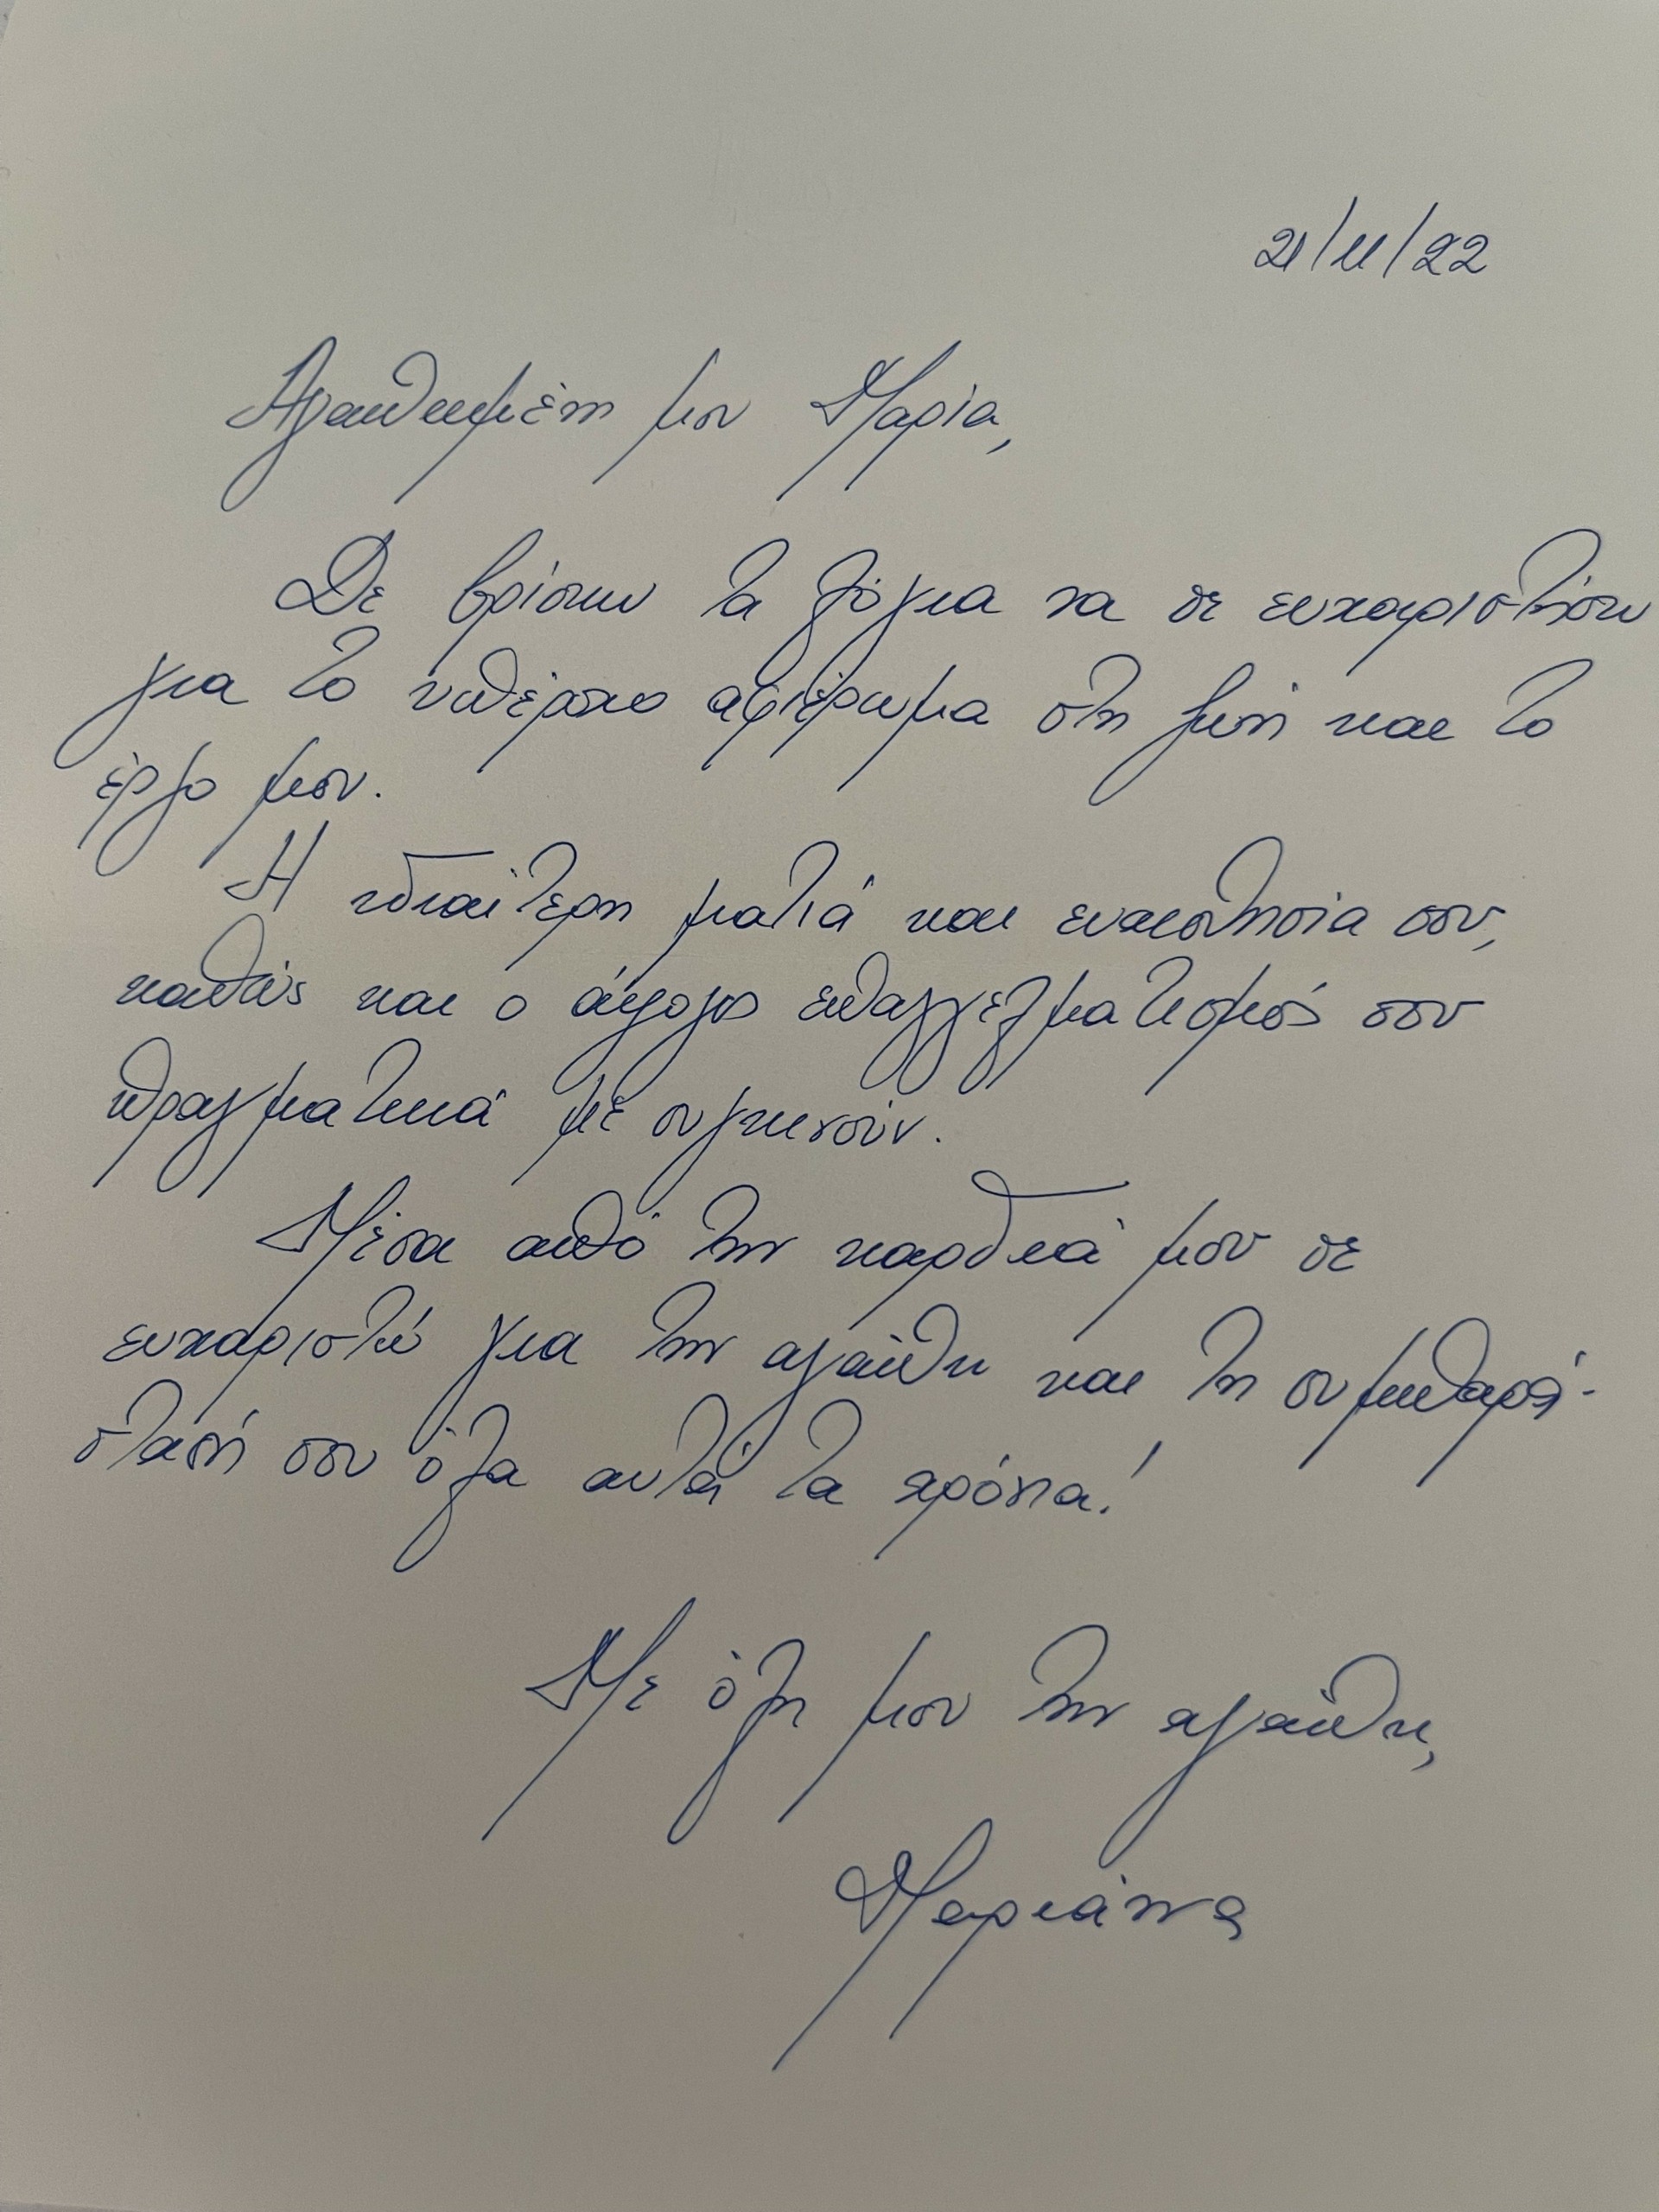 21/11/22
Αγαπημένη μου Μαρία,
Δε βρίσκω τα λόγια να σε ευχαριστήσω
για το υπέροχο αφιέρωμα στη ζωή και το
έργο μου.
Η ιδιαίτερη ματιά και ευαισθησία σου,
καθώς και ο άψογος επαγγελματισμός σου
πραγματικά με συγκινούν.
Μέσα από την καρδιά μου σε
ευχαριστώ για την αγάπη και τη συμπαρά-
στασή σου όλα αυτά τα χρόνια!
Με όλη μου την αγάπη,
Μαριάννα